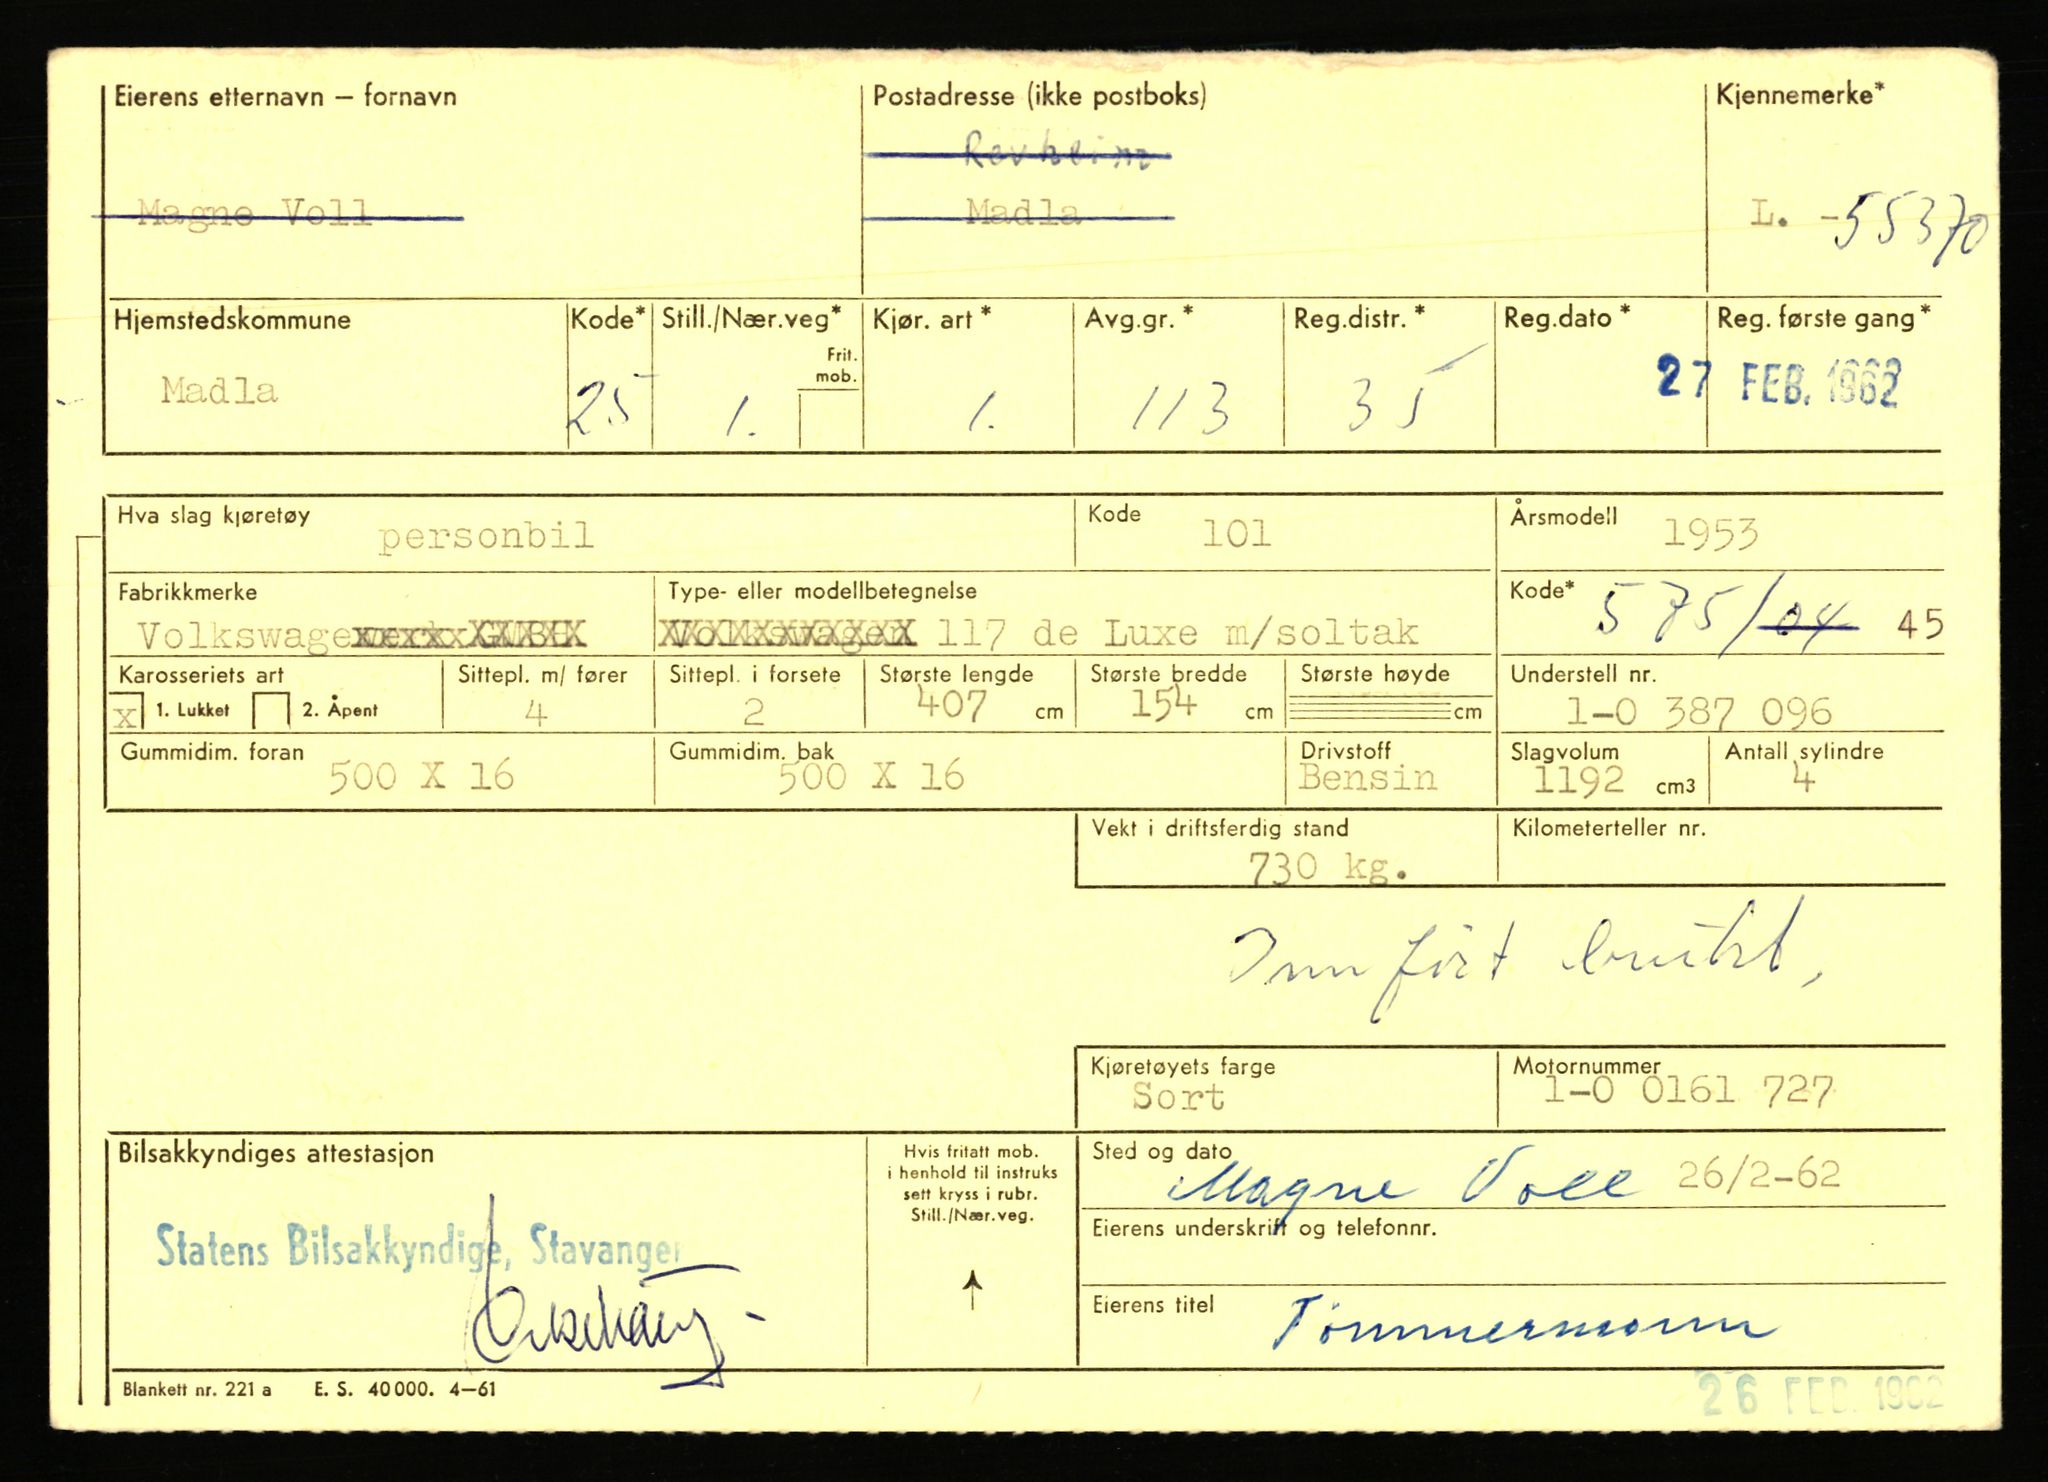 Eierens etternavn – fornavn
Magne Voll
Postadresse (ikke postboks)
Revheim
Madla
Kjennemerke*
L. -55370
Hjemstedskommune
Madla
Kode*
25
Still./Nær.veg*
1.
Frit. mob.
Kjør. art *
1.
Avg.gr. *
113
Reg.distr. *
35
Reg.dato *
Reg. første gang *
27 FEB. 1962
Hva slag kjøretøy
personbil
Kode
101
Årsmodell
1953
Fabrikkmerke
Volkswagen
Type- eller modellbetegnelse
Volkswagen 117 de Luxe m/soltak
Kode*
575/04 45
Karosseriets art
x 1. Lukket 2. Åpent
Sittepl. m/ fører
4
Sittepl. i forsete
2
Største lengde
407 cm
Største bredde
154 cm
Største høyde
cm
Understell nr.
1-0 387 096
Gummidim. foran
500 X 16
Gummidim. bak
500 X 16
Drivstoff
Bensin
Slagvolum
1192 cm3
Antall sylindre
4
Vekt i driftsferdig stand
730 kg.
Kilometerteller nr.
Innført brukt,
Kjøretøyets farge
Sort
Motornummer
1-0 0161 727
Bilsakkyndiges attestasjon
Statens Bilsakkyndige, Stavanger
Hvis fritatt mob.
i henhold til instruks
sett kryss i rubr.
Still./Nær.veg.
Sted og dato
Magne Voll 26/2-62
Eierens underskrift og telefonnr.
Eierens titel
Tömmermann
Blankett nr. 221 a E. S. 40 000. 4–61
26 FEB. 1962